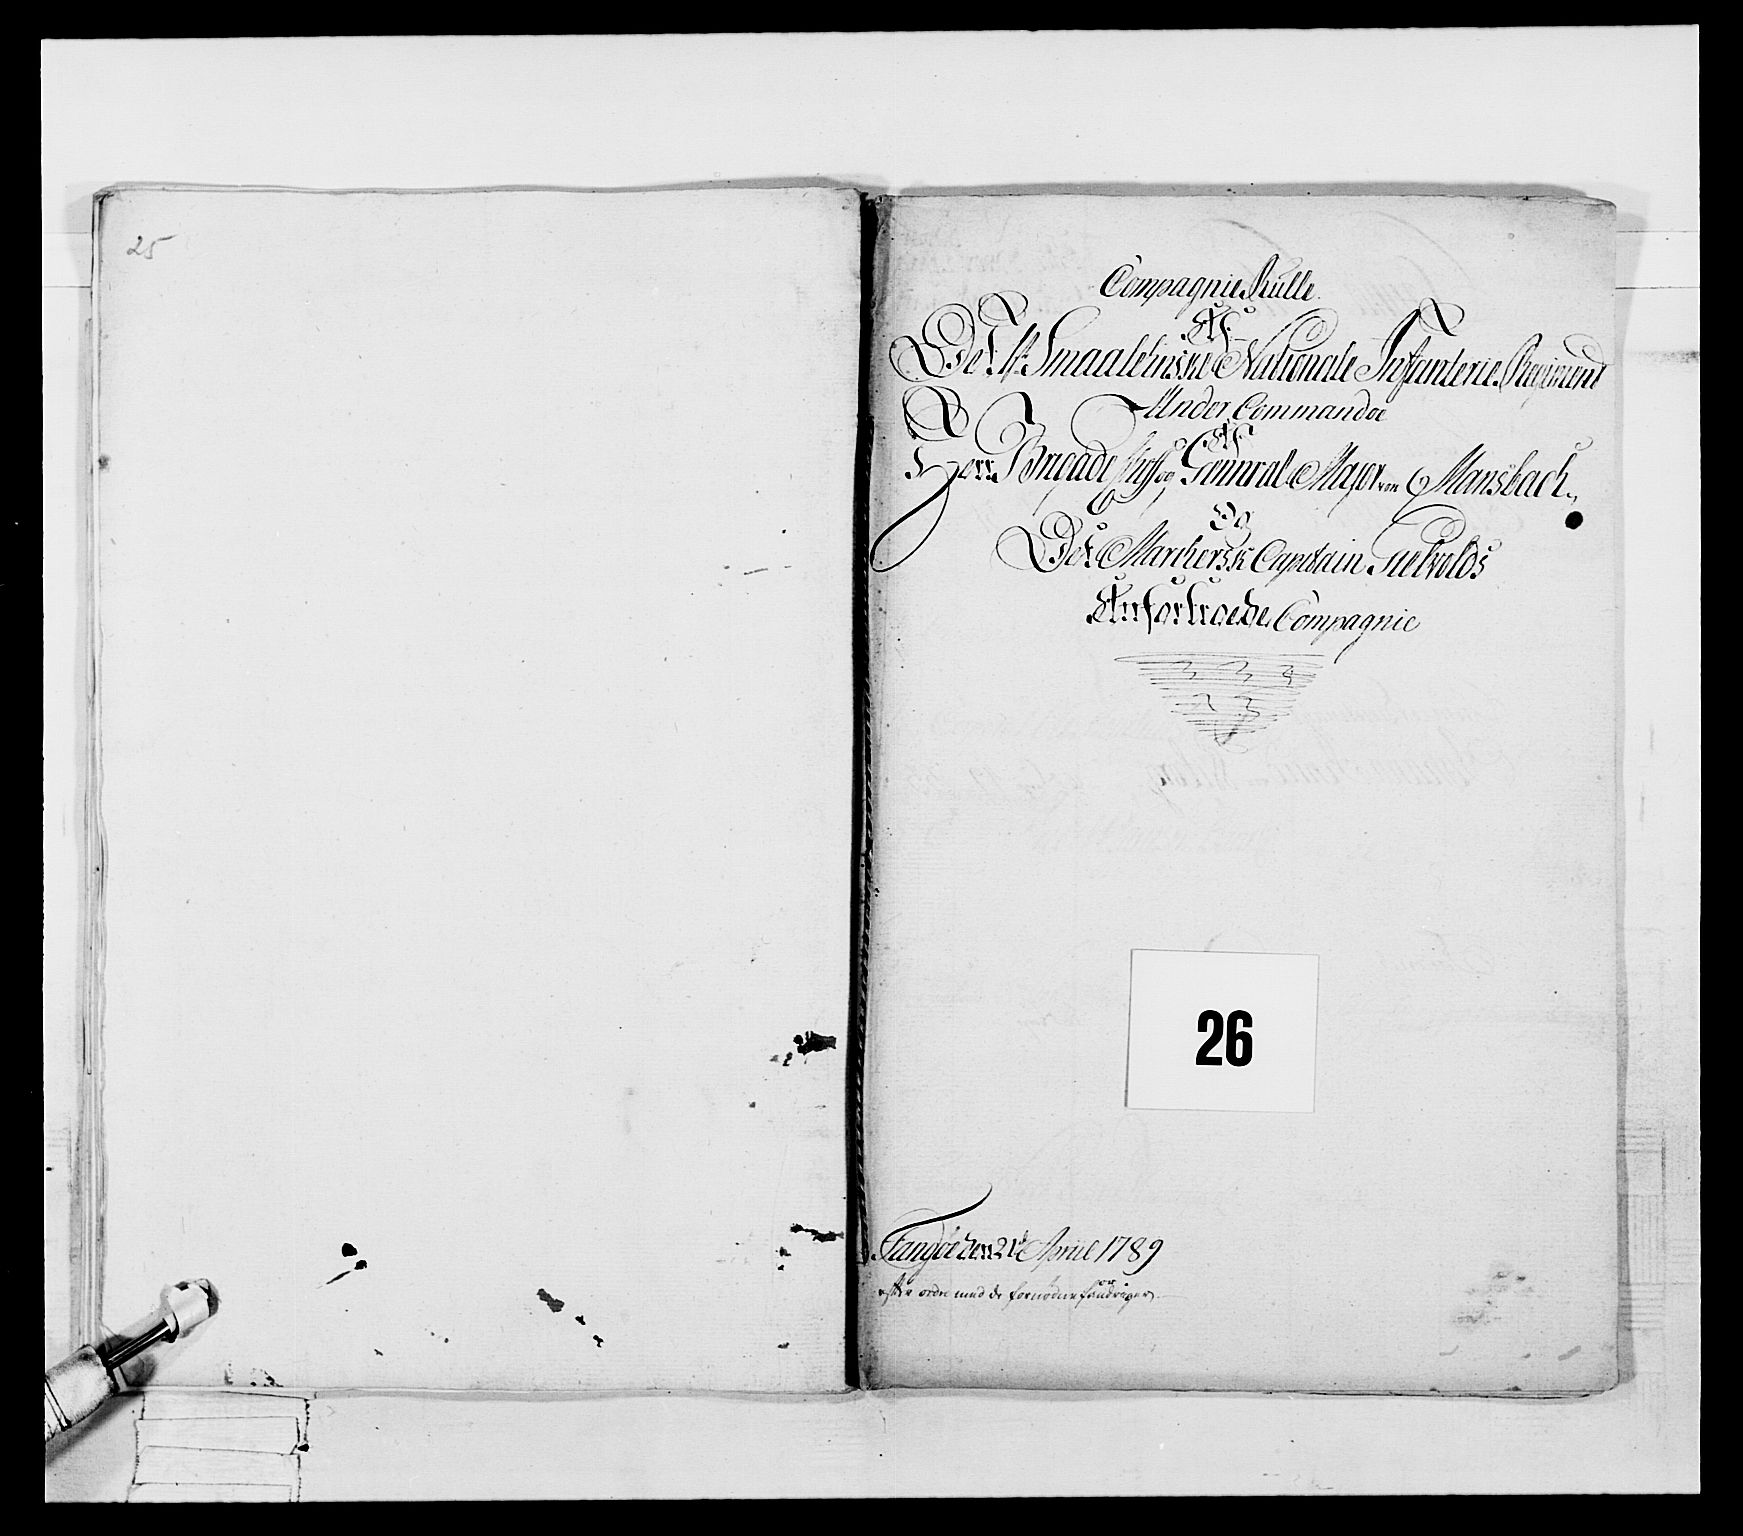 25
Compagnie Rulle.
Af
Det 1t Smaalehnske Nationale Infanterie Regiment
Under Commandoe
Af
Herr Brigade Chef og General Major von Mansbach
Og
Det Marchersk Capitain Tuelvolds
Anfortroede Compagnie
26
den 21d April 1789
efter ordre med de fornødne forandringer.